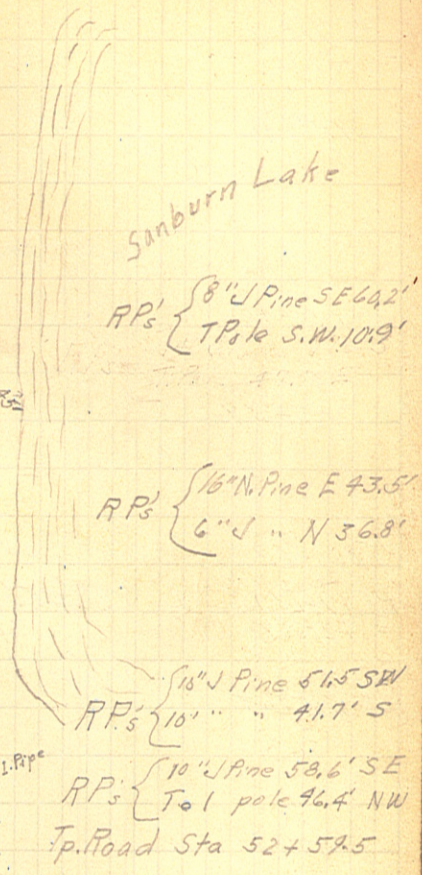 Sanburn Lake
RP's { 8" J Pine SE 60.2'
T Pole S.W. 10.9'
RP's { 16" N. Pine E 43.5'
6" J " N 36.8'
RP's { 10" J Pine 51.5 SW
10" " " 41.7' S
I. Pipe
RP's { 10" J Pine 58.6' SE
Tel pole 46.4' NW
Tp. Road Sta 52+59.5